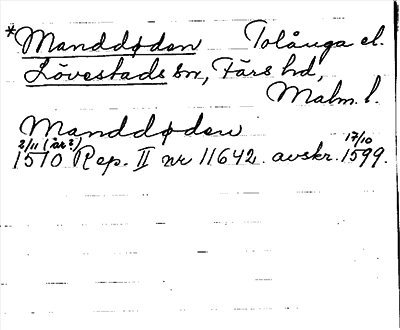 *Manddøden Tolånga el.
Lövestads sn, Färs hd,
Malm. l.
Manddøden
2/11 (år?) 17/10
1510 Rep. II nr 11642. avskr. 1599.